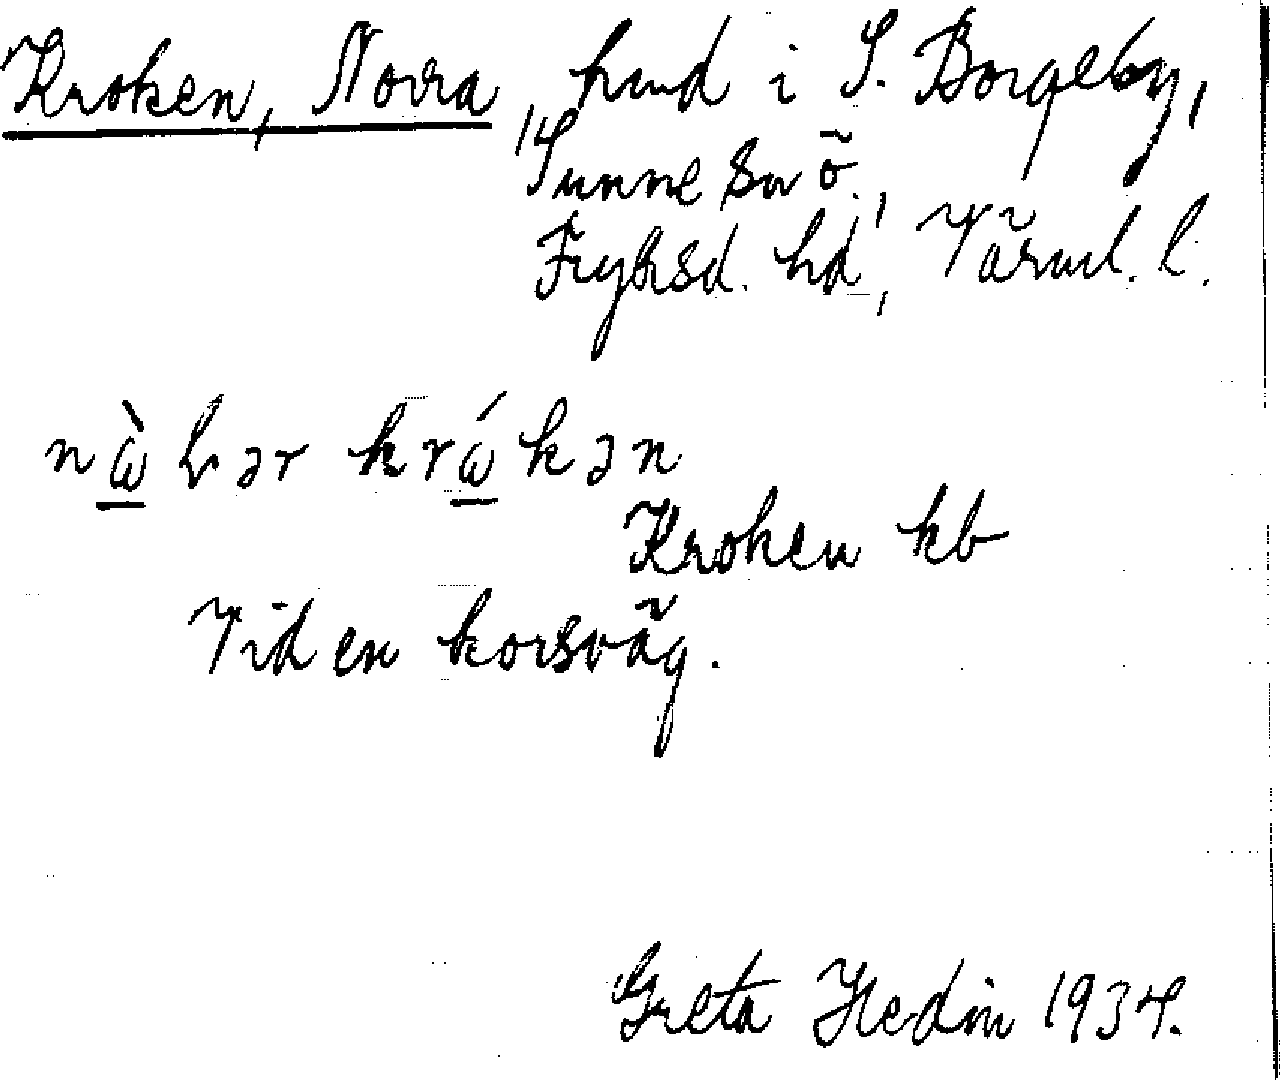 Kroken, Norra, hmd i S. Borgeby,
Sunne sn ö.,
Fryksd. hd, Värml. l.
nὼrər krώkən
Kroken kb
Vid en korsväg.
Greta Hedin 1934.